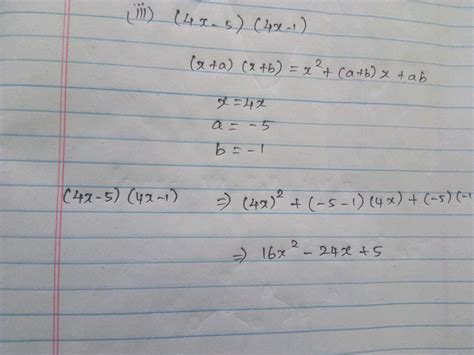 (iii) (4x-5) (4x-1)
(x+a) (x+b) = x² + (a+b) x + ab
x = 4x
a = -5
b = -1
(4x-5) (4x-1) ⇒ (4x)² + (-5-1) (4x) + (-5) (-1
⇒ 16x² - 24x + 5